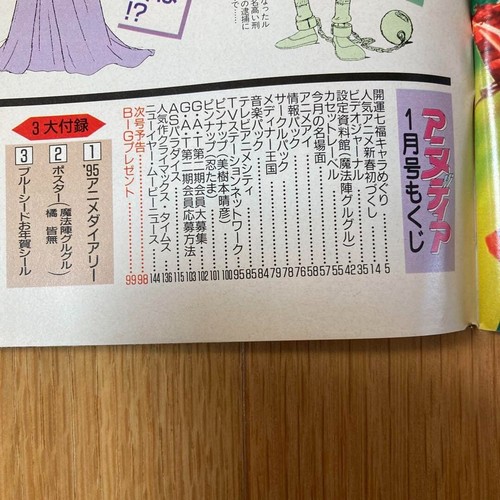 なったル
名高い刑
の逮捕に
!?
アニメディア
1月号もくじ
開運七福キャラめぐり……5
人気アニメ新春初づくし……14
ビデオジャーナル……35
設定資料館(魔法陣グルグル)……42
カセットレーベル……55
今月の名場面……57
アニメアイ……58
情報パック……76
サークルパック……78
メディナー王国……79
音楽パック……84
テレビアニメシティ……85
TVステーションネットワーク……95
ピンナップ(美樹本晴彦)……100
ピンナップ(忍たま)……101
G・A・T第二期会員大募集……102
G・A・T第二期会員応募方法……103
ASパラダイス……115
人気作クライマックス・タイムズ……136
ニューイヤー・ムービーニュース……144
次号予告……98
BIGプレゼント……99
3大付録
1 '95アニメダイアリー
2 ポスター(魔法陣グルグル 橘 皆無)
3 ブルーシードお年賀シール